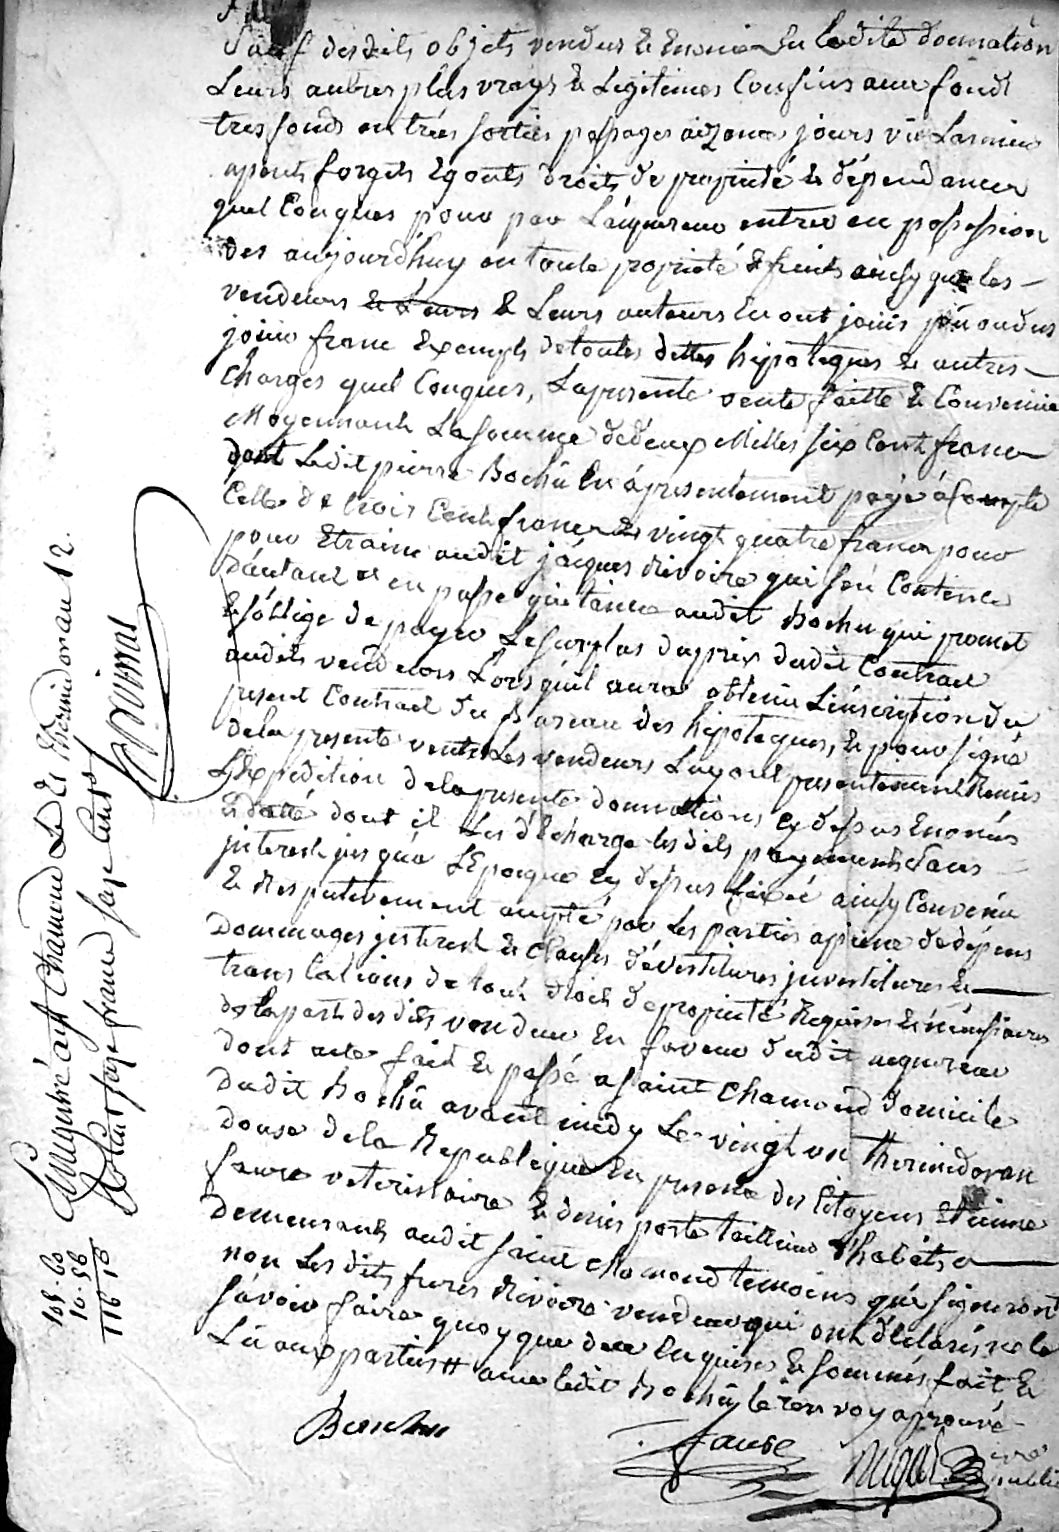 Sauf desdits objets vendus & Enoncés En laditte donnation
Leurs autres plus vrays & Legitimes Confins avec fond
tres fonds entrées sorties passages aizances jours vie Larmier
apents forgets Egouts droits de proprieté & dépendances
quel Conques pour par Laiquereur entrer en possession
des aujourd'huy en toute proprieté & fruits ainsy que les
vendeurs & Leurs & Leurs auteurs En ont jouis pu ou dus
jouir franc Exempts de toutes dettes hipoteques & autres
charges quel Conques, La presente vente faitte & Convenue
Moyennant La somme de deux Milles six Cent francs
dont Ledit pierre Bochu En á presentement payé á Compte
Celle de trois Cent francs & vingt quatre francs pour
pour Etraine audit jacques Rivoire qui s'en Contente
d'autant en passe quitance audit Bochu qui promet
& s'obllige de payer Le surplus du prix dudit Contract
audits vendeurs Lors qu'il aura obtenu L'inscription du
present Contract du Bureau des hipoteques, & pour signé
de la presente vente Les vendeurs Luy ont presentement Remis
L'Expedition de la presente donnations Cy dessus Enonées
& datté dont il Les décharge les dits payements sans
jnterest jusqu'a L'Epoque Cy dessus fixeé ainsy Convenu
& Respectivement accepté par Les parties apeine de dépens
Dommages jnterest & clauses dévestitures jnvestitures &
trans lations de tout droit de proprieté Requises & nécessaires
de la part des dits vendeur En faveur dudit acquereur
dont acte fait & passé a saint Chamond domicile
dudit Bochu avant midy Le vingt un Thermidor an
douse de la Republique En presence des Citoyens Etienne
faure veterinaire & denis porte tailleur d'habits
demeurants audit saint chamond temoins qui signeront
non Les dits freres Rivoire vendeurs qui ont déclarés ne le
sávoir faire quoy que de ce Enquises & sommés fait &
Lu aux parties avec ledit Bochu, le renvoy aprouvé
Bochu
faure
public
Enregistré a St Chamond Le 21 Thermidor an 12.
Reçu
seize francs seize cents
105.60
10.56
116 16